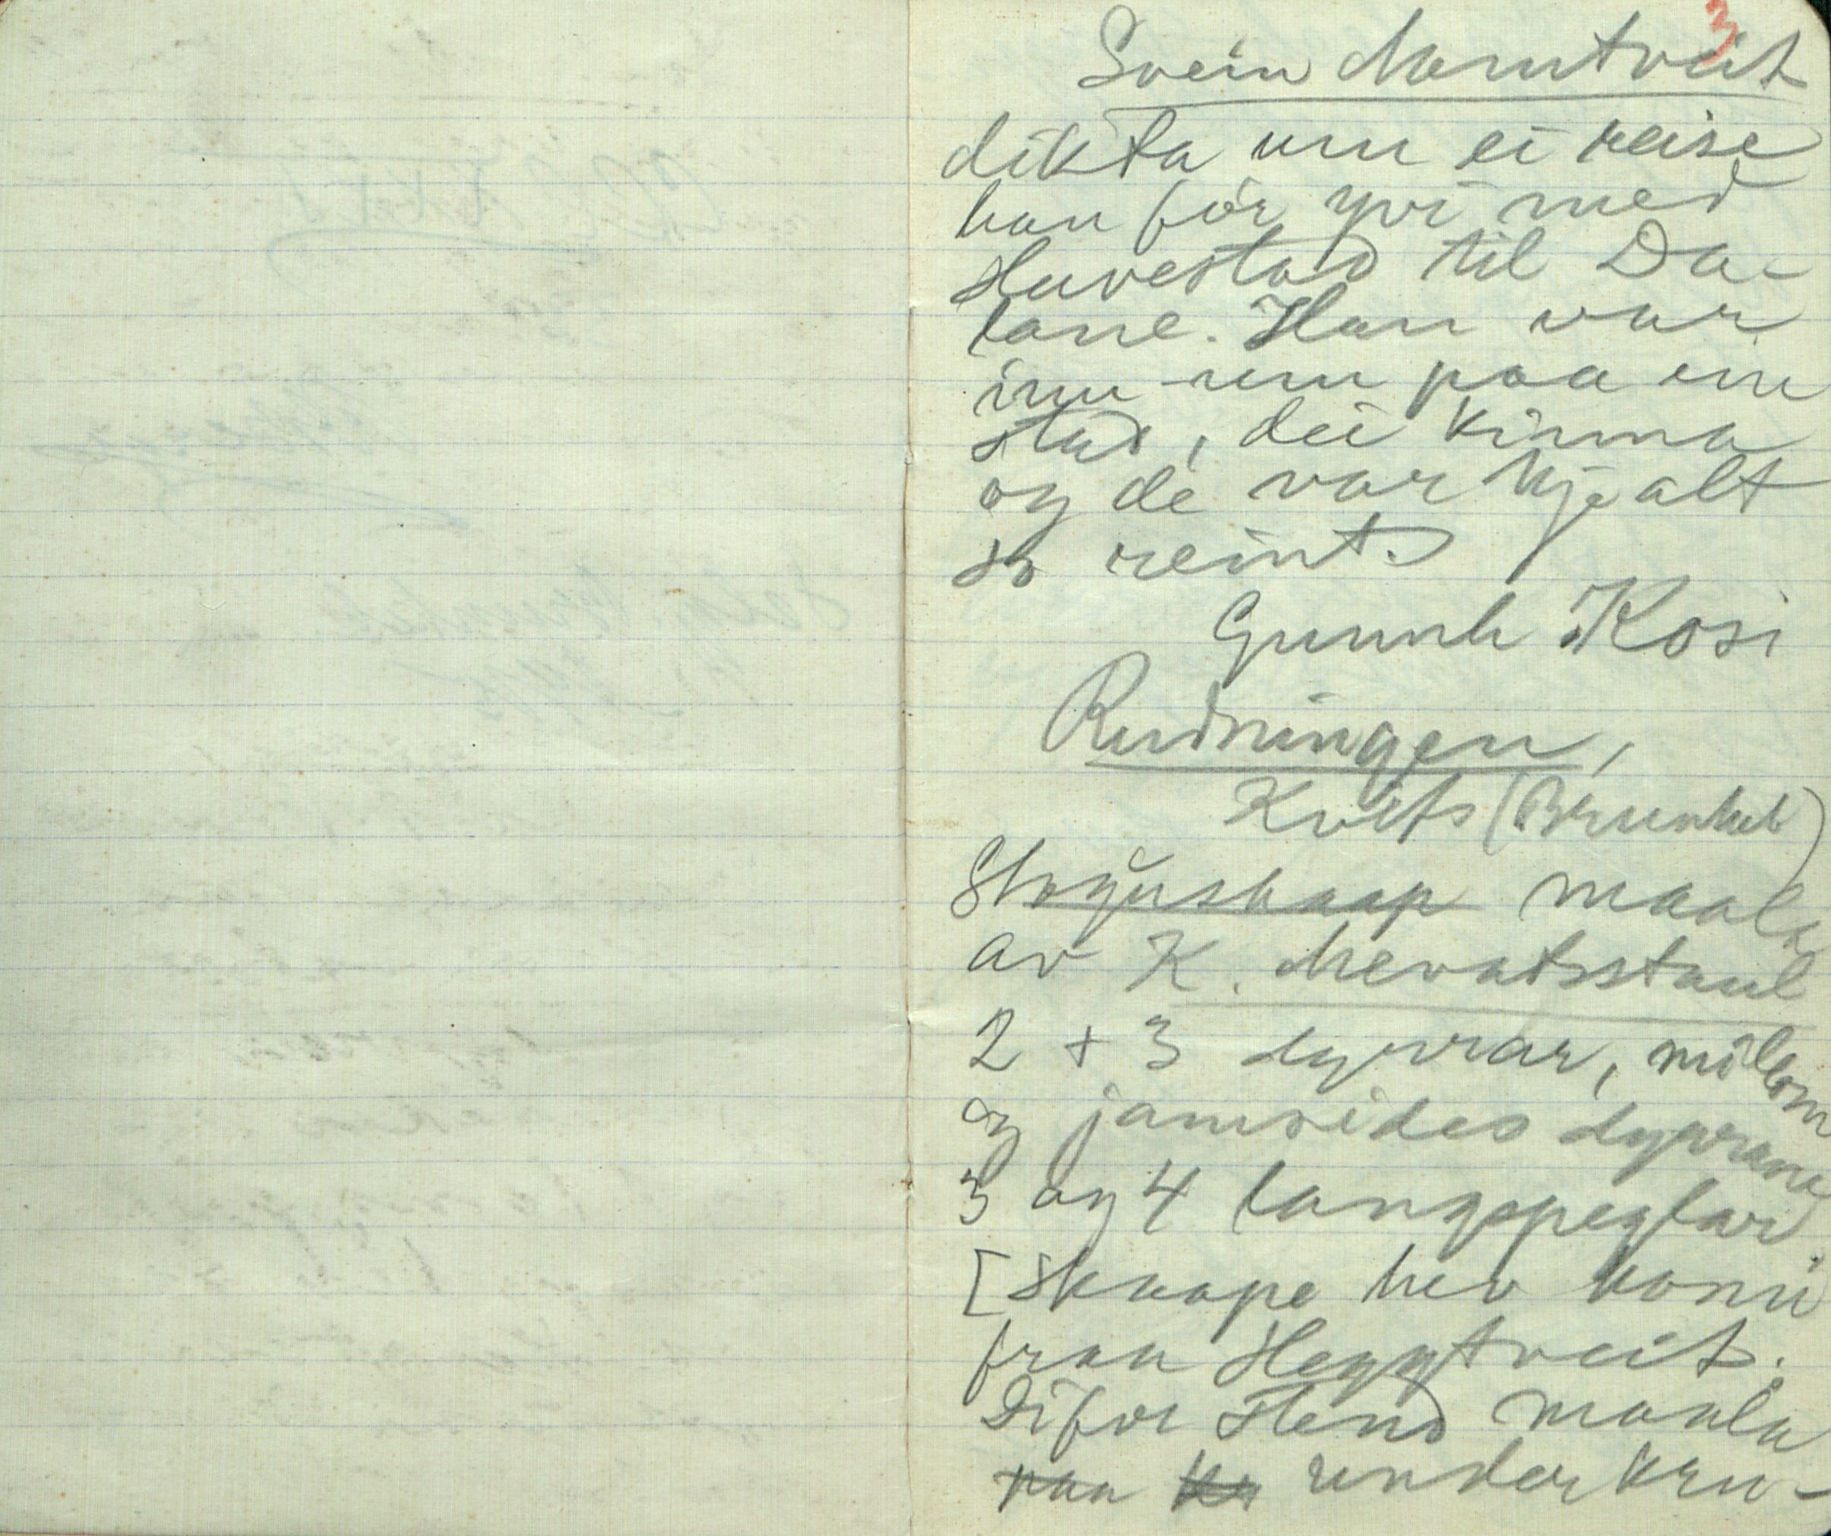 3
Svein Momtveit
dikta um ei reise
han fór yvi med
Huvestad til Da-
lane. Han var
inn um paa ein
stad, dei kinna
og de var kje alt
so reint.
Gunnh Kosi
Rudningen,
Kvits (Brunkeb)
Stoguskaap maala
av K. Mevatsstaul
2 + 3 dyrrar, millom
og jamsides dyrrane
3 og 4 langspeglar.
[Skaape hev komi
fraa Heggtveit.
Difor stend maala
paa kr under kru-